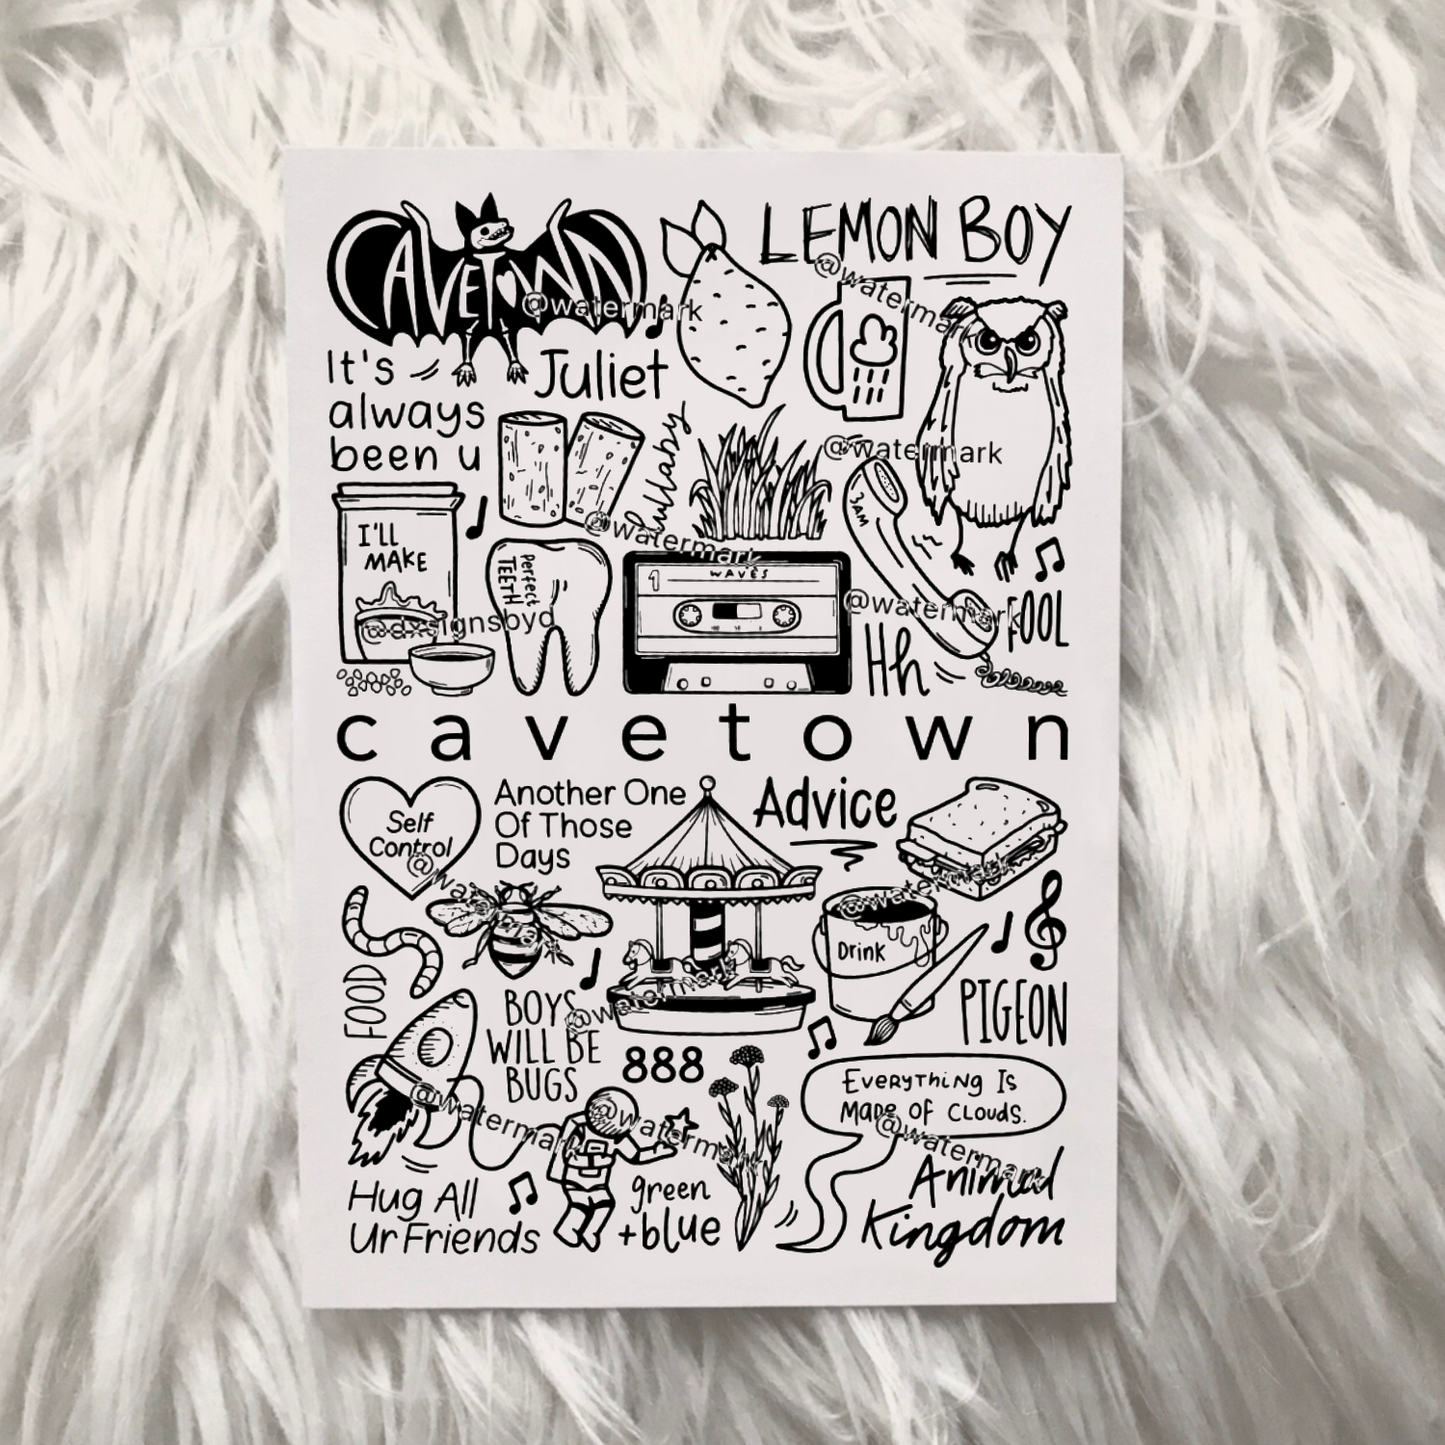 CAVETOWN
LEMON BOY
@watermark
@watermark
It's
always
been u
Juliet
lullaby
@watermark
@watermark
3AM
I'LL
MAKE
Perfect
TEETH
1
WAVES
@watermark
FOOL
@dxsignsbyd
Hh
cavetown
Self
Control
Another One
Of Those
Days
Advice
@watermark
@watermark
Drink
FOOD
BOYS
WILL BE
BUGS
@watermark
888
PIGEON
EVERYTHING IS
MADE OF CLOUDS.
@watermark
@watermark
@watermark
Hug All
Ur Friends
green
+blue
Animal
Kingdom